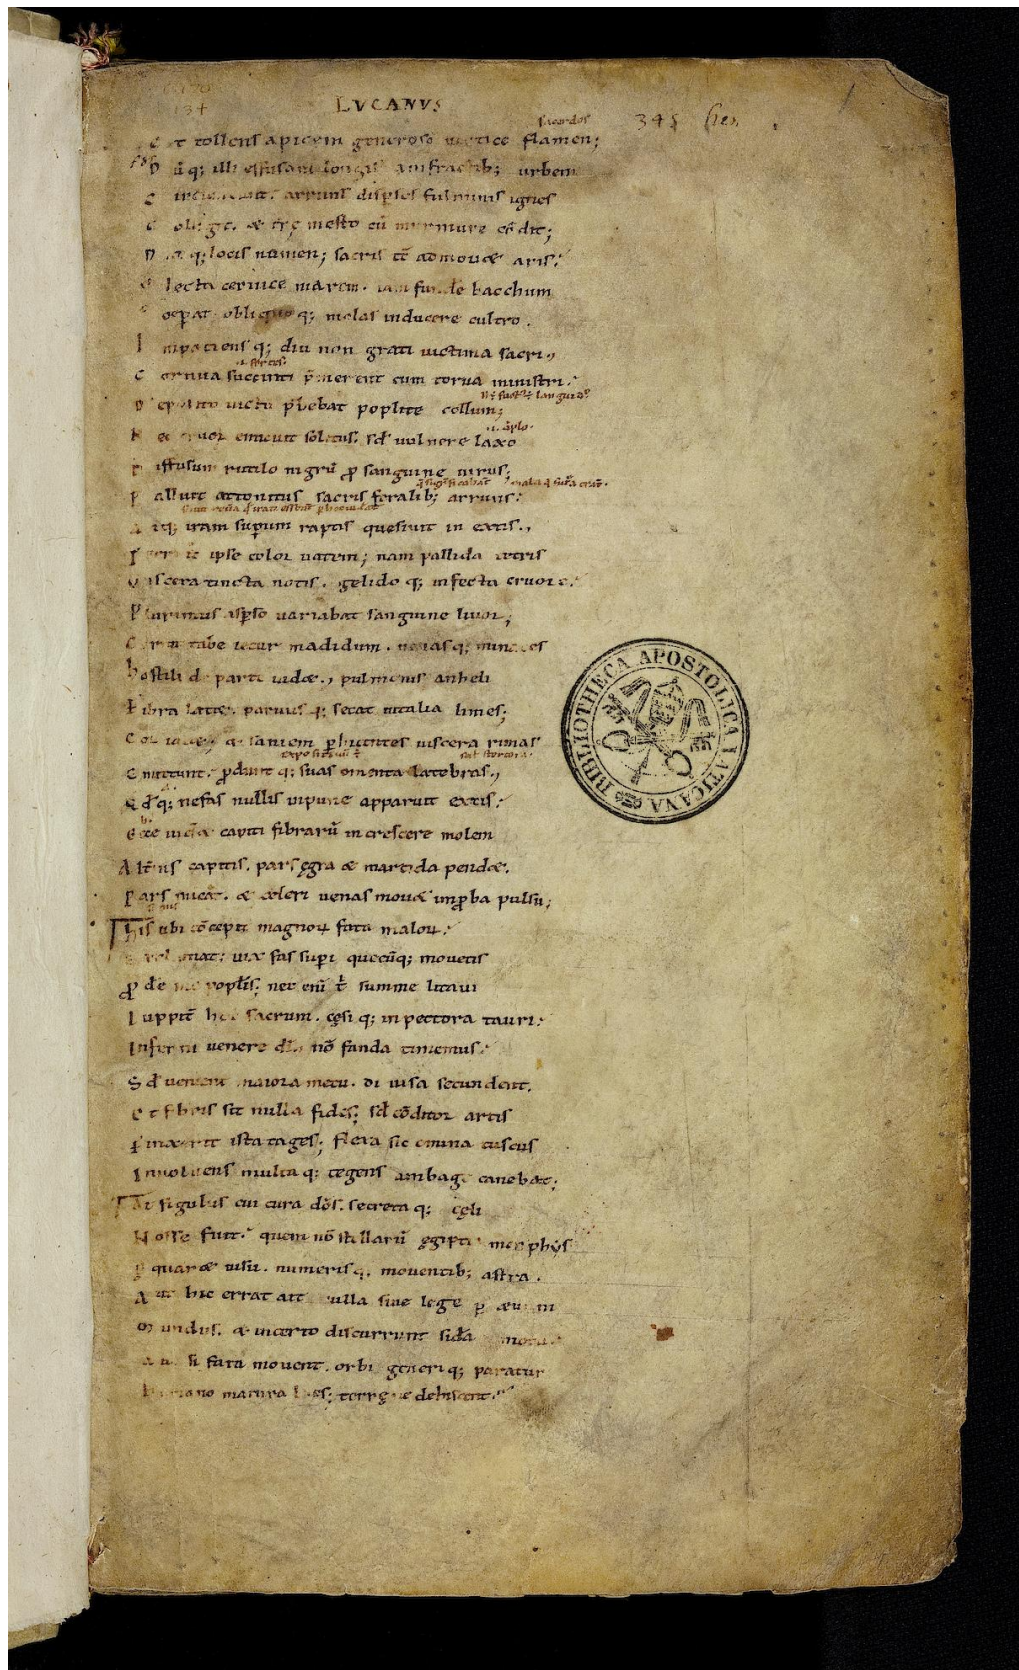 LVCANVS
345
sacerdos
Et tollens apicem generoso uertice flamen;
Dūq; illi effusam longis anfractib; urbem
arruns dispsos fulminis ignes
ollig &  mesto cū murmure cōdit;
Datq; locis numen; sacris tc̄ admouæ aris:
lecta ceruice marem. iam fundere bacchum
ceperat obliquoq; molas inducere cultro.
Inpatiensq; diu non grati uictima sacri.,
Cornua succincti p̄merent cum torua ministri:
Deposito uictu p̄bebat poplite collum;
Nec cruor emicuit solitus; sꝫ uulnere laxo
Diffusum rutilo nigrū ꝓ sanguine uirus;
Palluit attonitus sacris feralib; arruns:
Atq; iram supum raptis quesiuit in extis.,
Terruit ipse color uatem; nam pallida tetris
Viscera tincta notis. gelidoq; infecta cruore:
Plurimus aspso uariabat sanguine liuor;
Cernit tabe iecur madidum. uenasq; minaces
hostili de parte uidæ., pulmonis anheli
Fibra latæ. paruusq; secat uitalia limes;
Cor iacæ; & saniem p hiantes uiscera rimas
Emittunt. ꝓduntq; suas omenta latebras.,
Qđq; nefas nullis inpune apparuit extis:
Ecce uidæ capiti fibrarū increscere molem
Alti᷑ius capitis. pars ęgra & marcida pendæ.
Pars micat. & celeri uenas mouæ inꝓba pulsu;
His ubi cōcepit magnoꝝ fata maloꝝ:
uix fas supi quecūq; mouetis
ꝓdere me poplis; nec enī t᷑ summe litaui
Iuppit᷑ hoc sacrum. cęsiq; in pectora tauri:
Inferni uenere di.. nō fanda timemus:
Sꝫ uenient maiora metu. di uisa secundent.
Et fibris sit nulla fides; sꝫ cōditor artis
Finxerit ista tages; flexa sic omina tuscus
Inuoluens multaq; tegens ambage canebat;
At figulus cui cura dōs. secretaq; cęli
Nosse fuit: quem nō stellarū ęgiptia memphys
quaræ uisu. numerisq. mouentib; astra.
Aut hic errat ait nulla siue lege p æuum
Mundus. & incerto discurrunt sid᷑a motu:
Aut si fata mouent. orbi generiq; paratur
humano matura lues; terręne dehiscent:
BIBLIOTHECA APOSTOLICA VATICANA